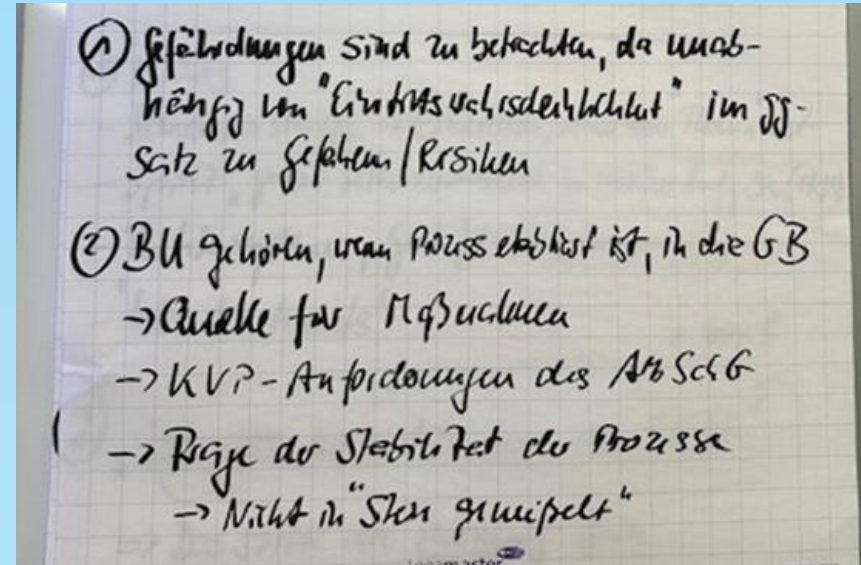 ① Gefährdungen sind zu betrachten, da unab-
hängig von "Eintrittswahrscheinlichkeit" im Gg-
satz zu Gefahren/Risiken
② BU gehören, wenn Prozess etabliert ist, in die GB
-> Quelle für Maßnahmen
-> KVP-Anforderungen des ArbSchG
-> Frage der Stabilität der Prozesse
-> Nicht in "Stein gemeißelt"
Legamaster